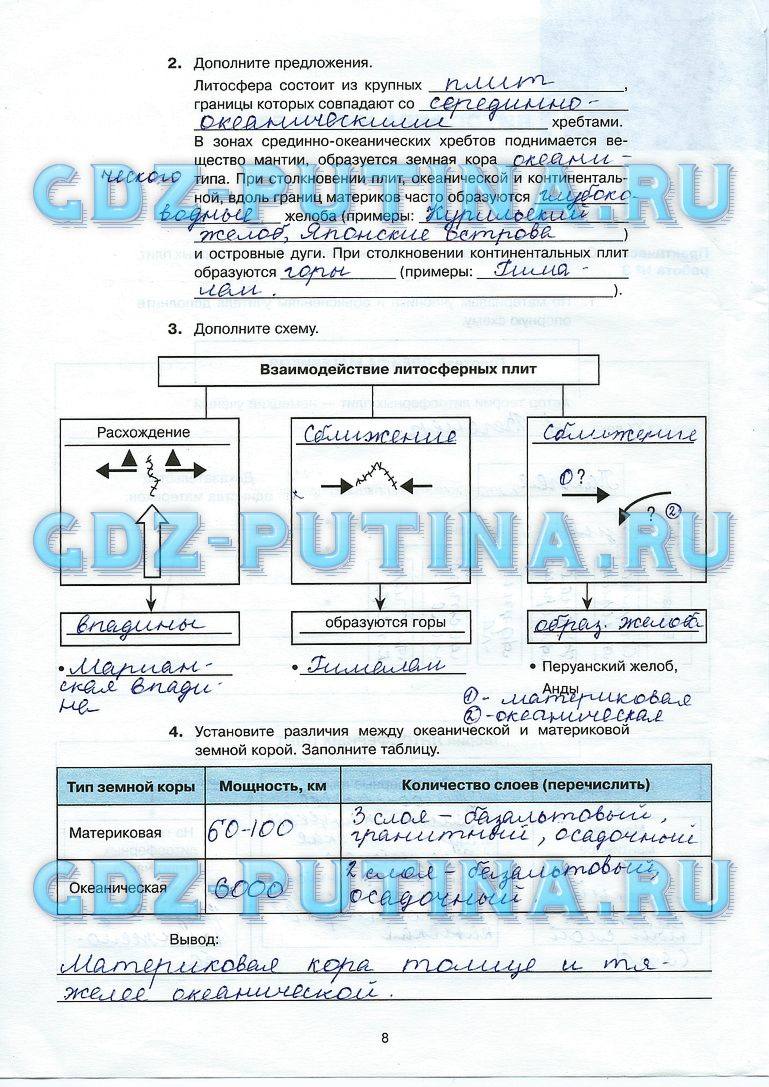 2. Дополните предложения.
Литосфера состоит из крупных плит,
границы которых совпадают со серединно-
океаническими хребтами.
В зонах срединно-океанических хребтов поднимается ве-
щество мантии, образуется земная кора океани-
ческого типа. При столкновении плит, океанической и континенталь-
ной, вдоль границ материков часто образуются глубоко-
водные желоба (примеры: Курильский
желоб, Японские острова)
и островные дуги. При столкновении континентальных плит
образуются горы (примеры: Гима-
лаи.).
3. Дополните схему.
Взаимодействие литосферных плит
Расхождение
Сближение
Сближение
1)?
? 2
впадины
образуются горы
образ. желоба
• Мариан-
ская впади-
на
• Гималаи
• Перуанский желоб,
Анды
1 - материковая
2 - океаническая
4. Установите различия между океанической и материковой
земной корой. Заполните таблицу.
Тип земной коры Мощность, км Количество слоев (перечислить)
Материковая 60-100 3 слоя – базальтовый,
гранитный, осадочный
Океаническая 6000 2 слоя – базальтовый,
осадочный
Вывод:
Материковая кора толще и тя-
желее океанической.
8
GDZ-PUTINA.RU
GDZ-PUTINA.RU
GDZ-PUTINA.RU